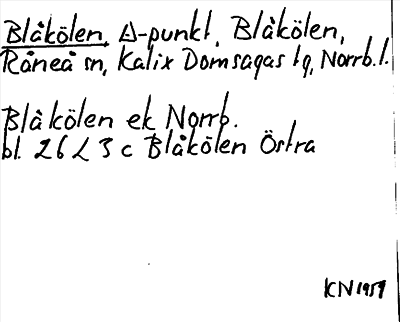 Blåkölen, Δ-punkt, Blåkölen,
Råneå sn, Kalix Domsagas tg, Norrb.l.
Blåkölen ek Norrb.
bl. 26 L 3 c Blåkölen Östra
KN 1959